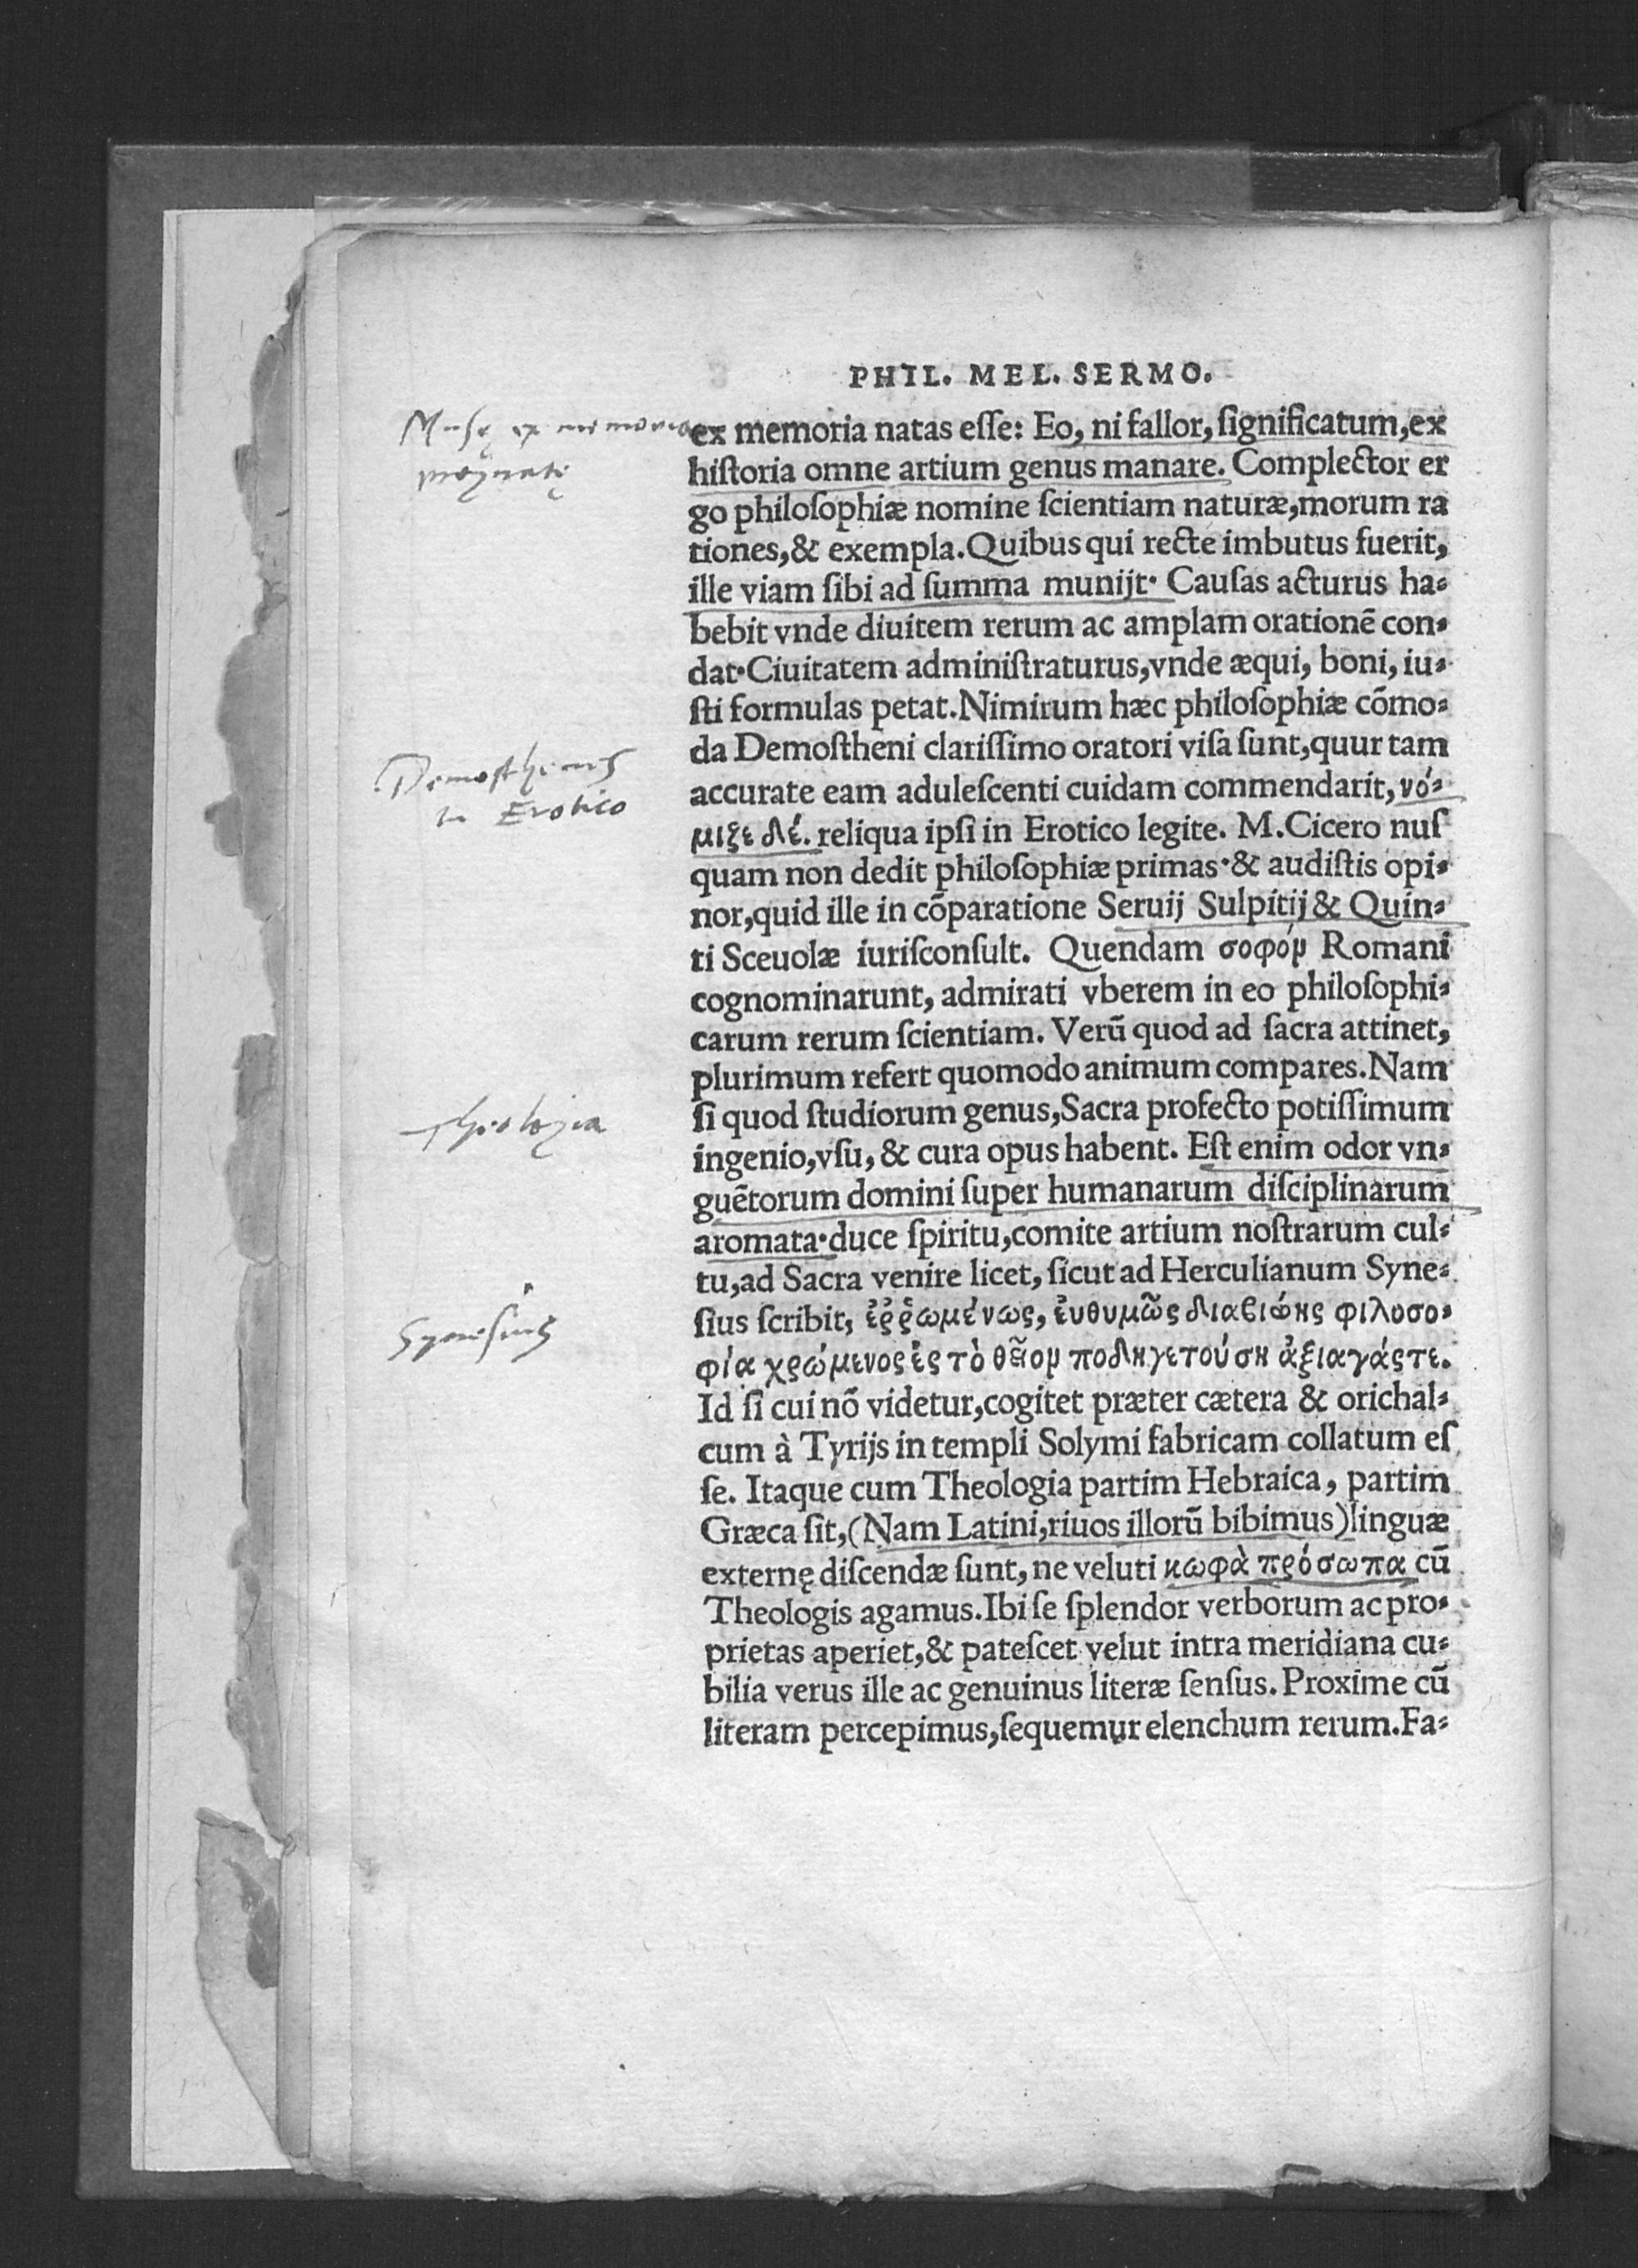 PHIL. MEL. SERMO.
Musę ex memoria
prognatę
ex memoria natas eſſe: Eo, ni fallor, ſignificatum, ex
hiſtoria omne artium genus manare. Complector er
go philoſophiæ nomine ſcientiam naturæ, morum ra
tiones, & exempla. Quibus qui recte imbutus fuerit,
ille viam ſibi ad ſumma munijt· Cauſas acturus ha⸗
bebit vnde diuitem rerum ac amplam orationē con⸗
dat· Ciuitatem adminiſtraturus, vnde æqui, boni, iu⸗
ſti formulas petat. Nimirum hæc philoſophiæ cōmo⸗
da Demoſtheni clariſſimo oratori viſa ſunt, quur tam
Demosthenes
in Erotico
accurate eam aduleſcenti cuidam commendarit, νό⸗
μιξε δέ. reliqua ipſi in Erotico legite. M. Cicero nuſ
quam non dedit philoſophiæ primas· & audiſtis opi⸗
nor, quid ille in cōparatione Seruij Sulpitij & Quin⸗
ti Sceuolæ iuriſconſult. Quendam σοφόν Romani
cognominarunt, admirati vberem in eo philoſophi⸗
carum rerum ſcientiam. Verū quod ad ſacra attinet,
plurimum refert quomodo animum compares. Nam
Theologia
ſi quod ſtudiorum genus, Sacra profecto potiſſimum
ingenio, vſu, & cura opus habent. Eſt enim odor vn⸗
guētorum domini ſuper humanarum diſciplinarum
aromata· duce ſpiritu, comite artium noſtrarum cul⸗
tu, ad Sacra venire licet, ſicut ad Herculianum Syne⸗
Synesius
ſius ſcribit, ἐῤῥωμένως, ἐυθυμῶς διαβιώης φιλοσο⸗
φία χρώμενος ἐς τὸ θεῖον ποδηγετούση ἀξιαγάστε.
Id ſi cui nō videtur, cogitet præter cætera & orichal⸗
cum à Tyrijs in templi Solymi fabricam collatum eſ
ſe. Itaque cum Theologia partim Hebraica, partim
Græca ſit, (Nam Latini, riuos illorū bibimus) linguæ
externę diſcendæ ſunt, ne veluti κωφὰ πρόσωπα cū
Theologis agamus. Ibi ſe ſplendor verborum ac pro⸗
prietas aperiet, & pateſcet velut intra meridiana cu⸗
bilia verus ille ac genuinus literæ ſenſus. Proxime cū
literam percepimus, ſequemur elenchum rerum. Fa⸗